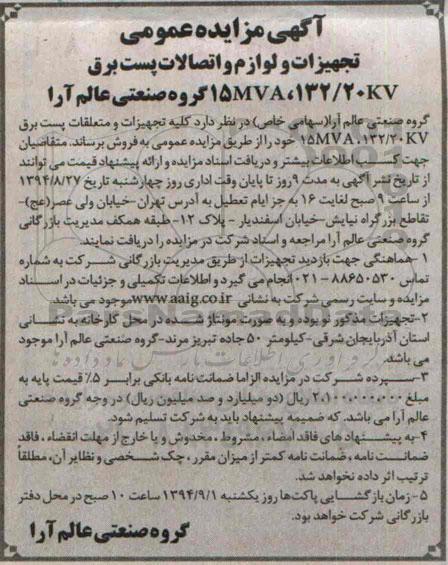 آگهی مزایده عمومی
تجهیزات و لوازم و اتصالات پست برق
۱۵MVA،۱۳۲/۲۰KV گروه صنعتی عالم آرا
گروه صنعتی عالم آرا(سهامی خاص) در نظر دارد کلیه تجهیزات و متعلقات پست برق
۱۵MVA،۱۳۲/۲۰KV خود را از طریق مزایده عمومی به فروش برساند. متقاضیان
جهت کسب اطلاعات بیشتر و دریافت اسناد مزایده و ارائه پیشنهاد قیمت می توانند
از تاریخ نشر آگهی به مدت ۹ روز تا پایان وقت اداری روز چهارشنبه تاریخ ۱۳۹۴/۸/۲۷
از ساعت ۹ صبح لغایت ۱۶ به جز ایام تعطیل به آدرس تهران -خیابان ولی عصر(عج)-
تقاطع بزرگراه نیایش -خیابان اسفندیار - پلاک ۱۲- طبقه همکف مدیریت بازرگانی
گروه صنعتی عالم آرا مراجعه و اسناد شرکت در مزایده را دریافت نمایند.
۱-هماهنگی جهت بازدید تجهیزات از طریق مدیریت بازرگانی شرکت به شماره
تماس ۸۸۶۵۰۵۳۰-۰۲۱ انجام می گیرد و اطلاعات تکمیلی و جزئیات در اسناد
مزایده و سایت رسمی شرکت به نشانی www.aaig.co.ir موجود می باشد.
۲-تجهیزات مذکور نو بوده و به صورت مونتاژ نشده در محل کارخانه به نشانی
استان آذربایجان شرقی-کیلومتر ۵۰ جاده تبریز مرند-گروه صنعتی عالم آرا موجود
می باشد.
۳-سپرده شرکت در مزایده الزاما ضمانت نامه بانکی برابر ۵٪ قیمت پایه به
مبلغ ۲،۱۰۰،۰۰۰،۰۰۰ ریال (دو میلیارد و صد میلیون ریال) در وجه گروه صنعتی
عالم آرا می باشد. که ضمیمه پیشنهاد باید به شرکت تسلیم شود.
۴-به پیشنهاد های فاقد امضاء ، مشروط ، مخدوش و یا خارج از مهلت انقضاء ، فاقد
ضمانت نامه ، ضمانت نامه کمتر از میزان مقرر ، چک شخصی و نظایر آن، مطلقاً
ترتیب اثر داده نخواهد شد.
۵-زمان بازگشایی پاکت‌ها روز یکشنبه ۱۳۹۴/۹/۱ ساعت ۱۰ صبح در محل دفتر
بازرگانی شرکت خواهد بود.
گروه صنعتی عالم آرا